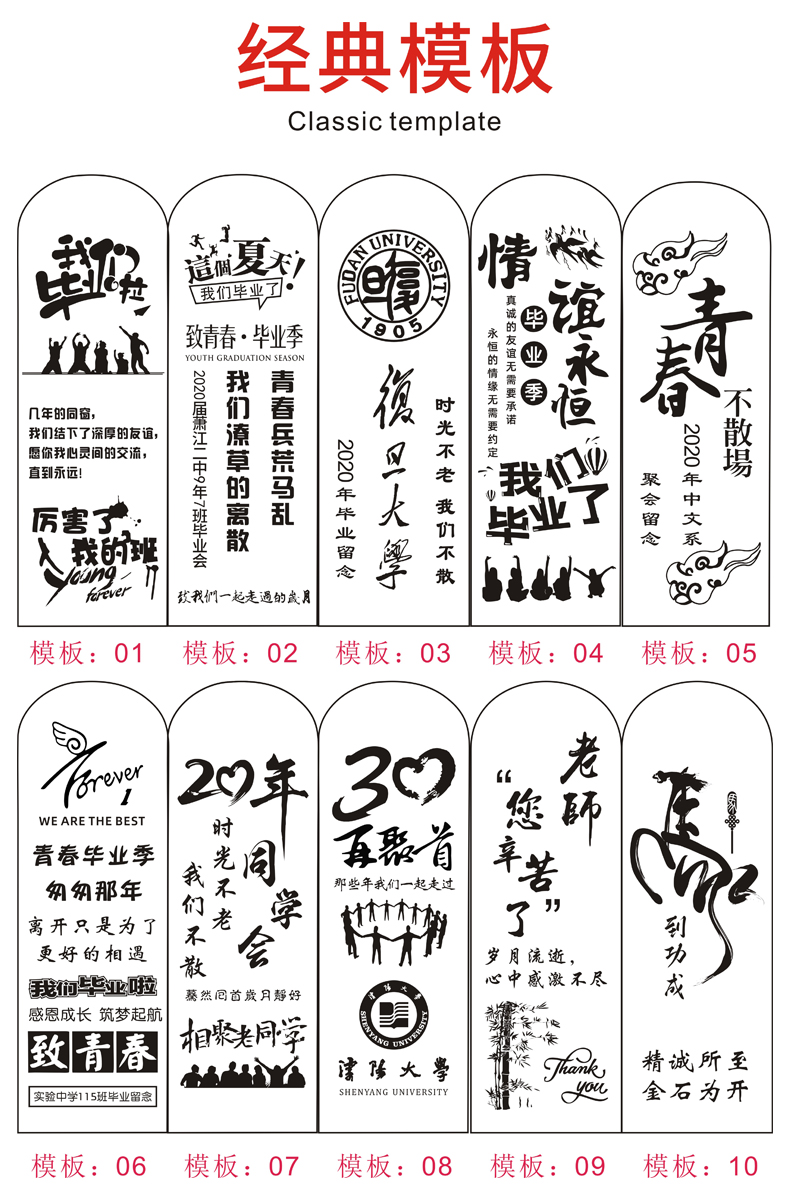 经典模板
Classic template
我们
毕业啦
几年的同窗，
我们结下了深厚的友谊，
愿你我心灵间的交流，
直到永远！
厉害了
我的班
young
forever
模板：01
這個夏天！
我们毕业了
致青春·毕业季
YOUTH GRADUATION SEASON
青春兵荒马乱
我们潦草的离散
2020届萧江二中9年7班毕业会
致我們一起走過的歲月
模板：02
FUDAN UNIVERSITY
復旦
1905
復旦大學
时光不老 我们不散
2020年毕业留念
模板：03
情
谊永恒
毕业季
真诚的友谊无需要承诺
永恒的情缘无需要约定
我们
毕业了
模板：04
青春
不散場
2020年中文系
聚会留念
模板：05
Forever
1
WE ARE THE BEST
青春毕业季
匆匆那年
离开只是为了
更好的相遇
我们毕业啦
感恩成长 筑梦起航
致青春
实验中学115班毕业留念
模板：06
20年
同学会
时光不老
我们不散
蓦然回首歲月靜好
相聚老同学
模板：07
30
再聚首
那些年我们一起走过
瀋陽大學
SHENYANG UNIVERSITY
瀋陽大學
SHENYANG UNIVERSITY
模板：08
老師
“您辛苦了”
岁月流逝，
心中感激不尽
Thank
you
模板：09
馬
到功成
精诚所至
金石为开
模板：10